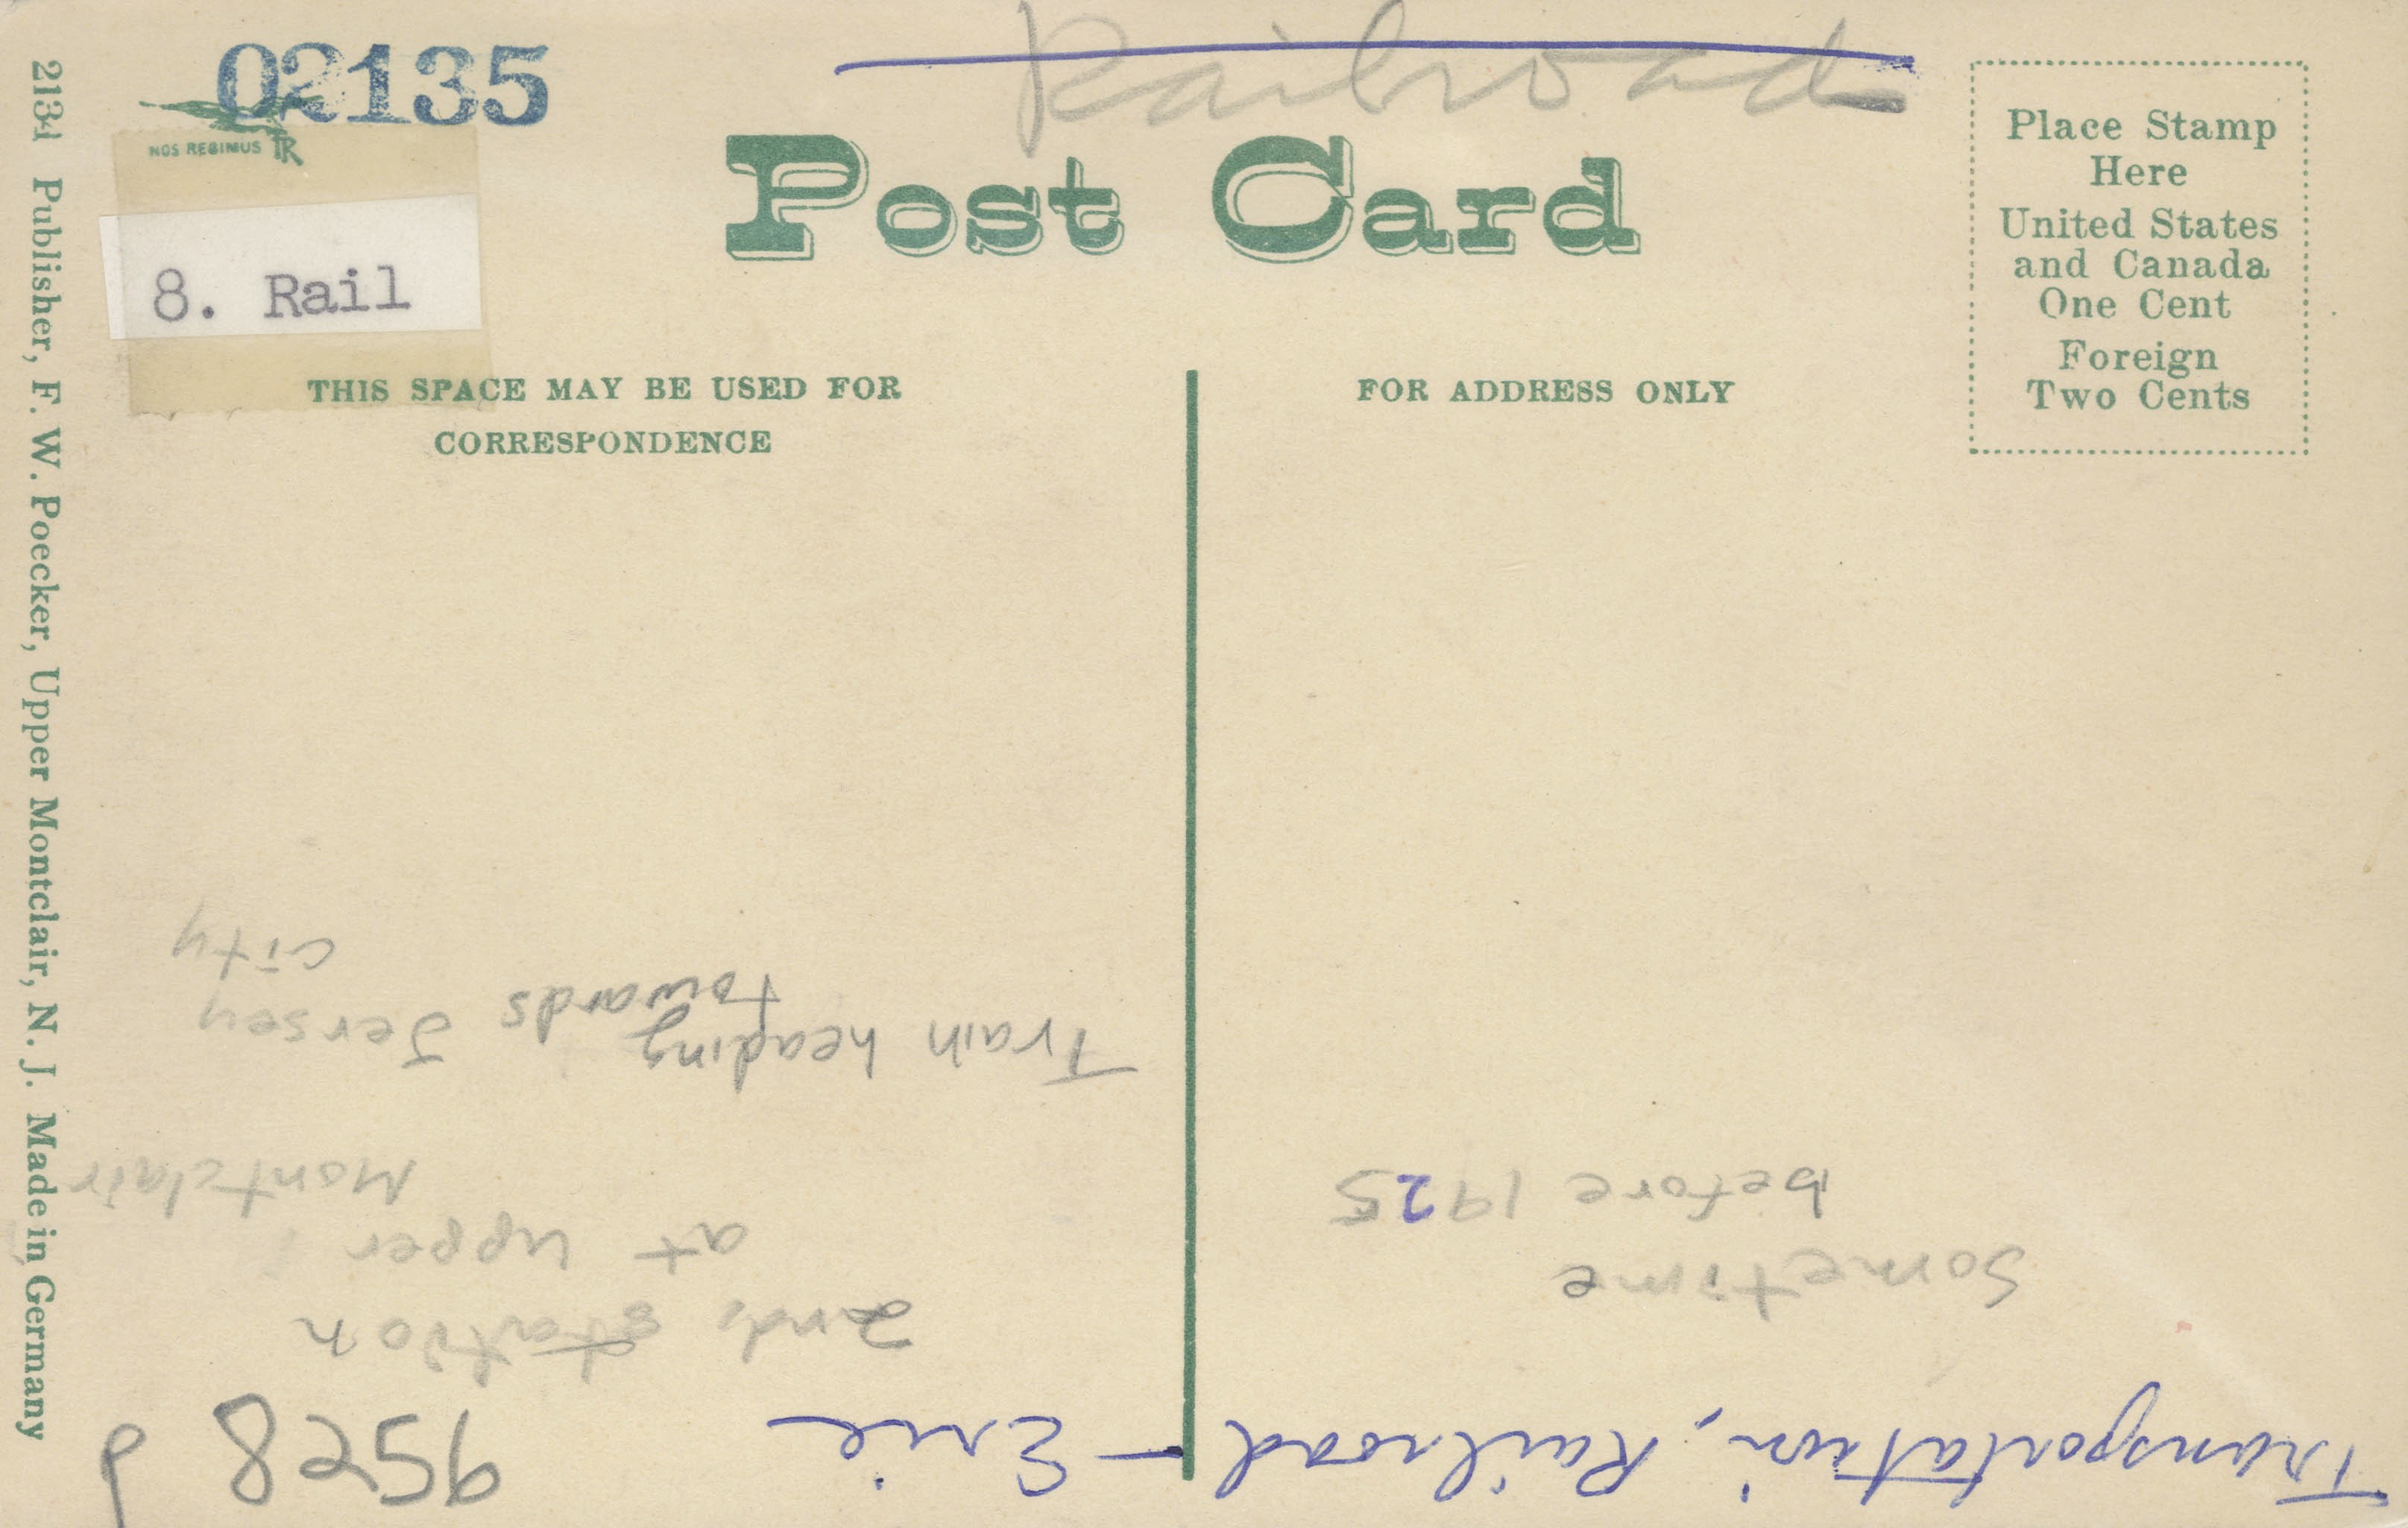 02135
NOS REGIMUS TR
8. Rail
Railroad
Post Card
Place Stamp
Here
United States
and Canada
One Cent
Foreign
Two Cents
THIS SPACE MAY BE USED FOR
CORRESPONDENCE
FOR ADDRESS ONLY
2134 Publisher, F. W. Poecker, Upper Montclair, N. J. Made in Germany
Transportation, Railroad – Erie
Sometime
before 1925
2nd station
at upper
Montclair
Train heading
towards Jersey
City